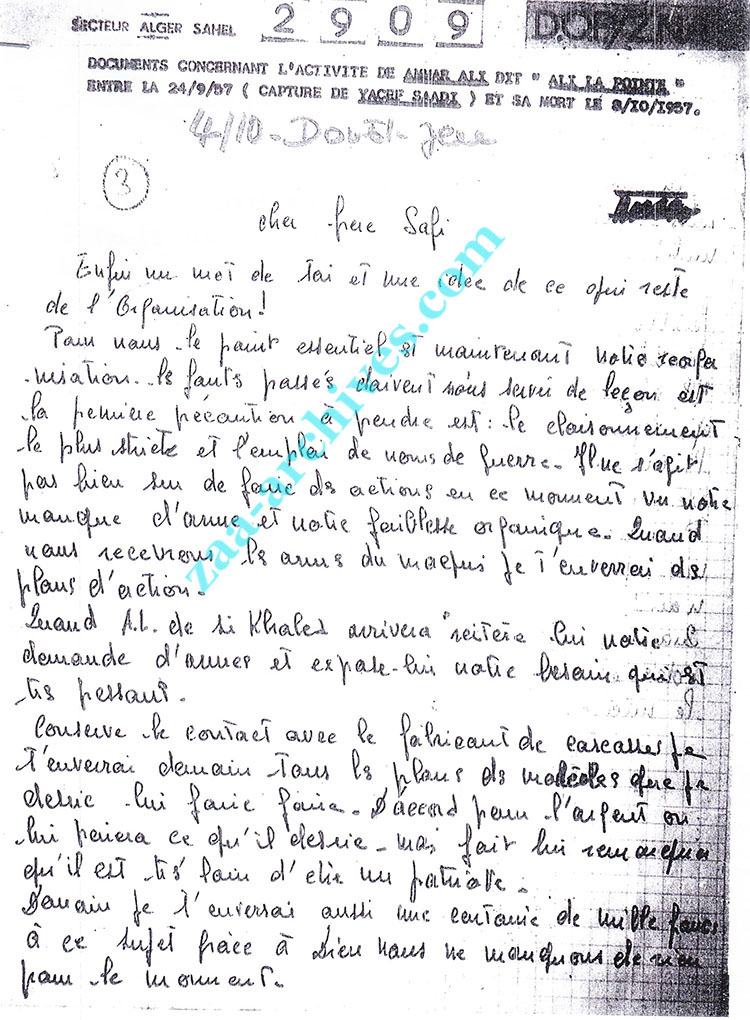 SECTEUR ALGER SAHEL 2909
DOCUMENTS CONCERNANT L'ACTIVITE DE AMMAR ALI DIT " ALI LA POINTE "
ENTRE LA 24/9/57 ( CAPTURE DE YACEF SAADI ) ET SA MORT LE 8/10/1957.
4/10 -
3
cher frere Safi
Enfin un mot de toi et une idée de ce qui reste
de l'Organisation!
Pour nous le point essentiel est maintenant notre reorga
-nisation. les fauts passés doivent nous servir de leçon est
la première précaution à prendre est: le cloisonnement
le plus stricte et l'emploi de noms de guerre. Il ne s'agit
pas bien sur de faire des actions en ce moment vu notre
manque d'arme et notre faiblesse organique. Quand
nous recevrons les armes du maquis je t'enverrai des
plans d'action.
Quand A.L. de Si Khaled arrivera reitère lui notre
demande d'armes et expose-lui notre besoin qui est
très pressant.
Conserve le contact avec le fabricant de carcasses je
t'enverrai demain tous les plans des modèles que je
desire lui faire faire. D'accord pour l'argent on
lui paiera ce qu'il desire. mais fait lui remarquer
qu'il est très loin d'etre un patriote.
Demain je t'enverrai aussi une centaine de mille francs
à ce sujet grace à Dieu nous ne manquons de rien
pour le moment.
zaa-archives.com